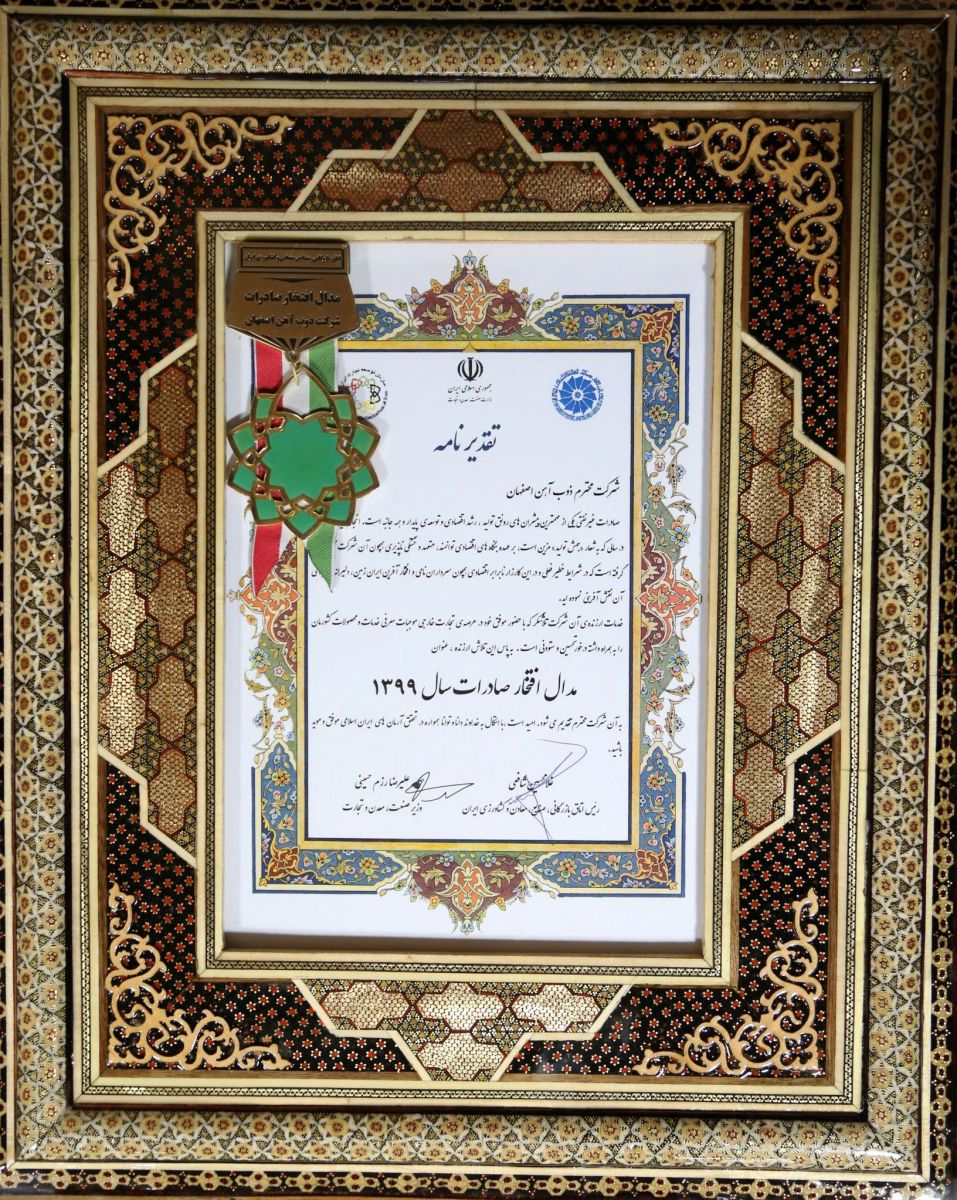 اتاق بازرگانی، صنایع، معادن و کشاورزی ایران
مدال افتخار صادرات
شرکت ذوب آهن اصفهان
جمهوری اسلامی ایران
وزارت صنعت، معدن و تجارت
تقدیرنامه
شرکت محترم ذوب آهن اصفهان
صادرات غیرنفتی یکی از مهمترین پیشران های رونق تولید، رشد اقتصادی و توسعه ی پایدار و همه جانبه است.
در سالی که به شعار «جهش تولید» مزین است، بر عهده بنگاه های اقتصادی توانمند، متعهد و خستگی ناپذیری همچون آن شرکت
گرفته است که در شرایط خطیر فعلی و در این کارزار نابرابر اقتصادی همچون سرداران نامی و افتخار آفرین ایران زمین، دلیرانه
آن نقش آفرینی نموده اید.
خدمات ارزنده ی آن شرکت تلاشگر که با حضور موفق خود در عرصه ی تجارت خارجی موجبات معرفی خدمات و محصولات کشورمان
را به همراه داشته درخور تحسین و ستودنی است. به پاس این تلاش ارزنده، عنوان
مدال افتخار صادرات سال ۱۳۹۹
به آن شرکت محترم تقدیم می شود. امید است با اتکال به خداوند دانا و توانا همواره در تحقق آرمان های ایران اسلامی موفق و موید
باشید.
غلامحسین شافعی
رئیس اتاق بازرگانی، صنایع، معادن و کشاورزی ایران
علیرضا رزم حسینی
وزیر صنعت، معدن و تجارت